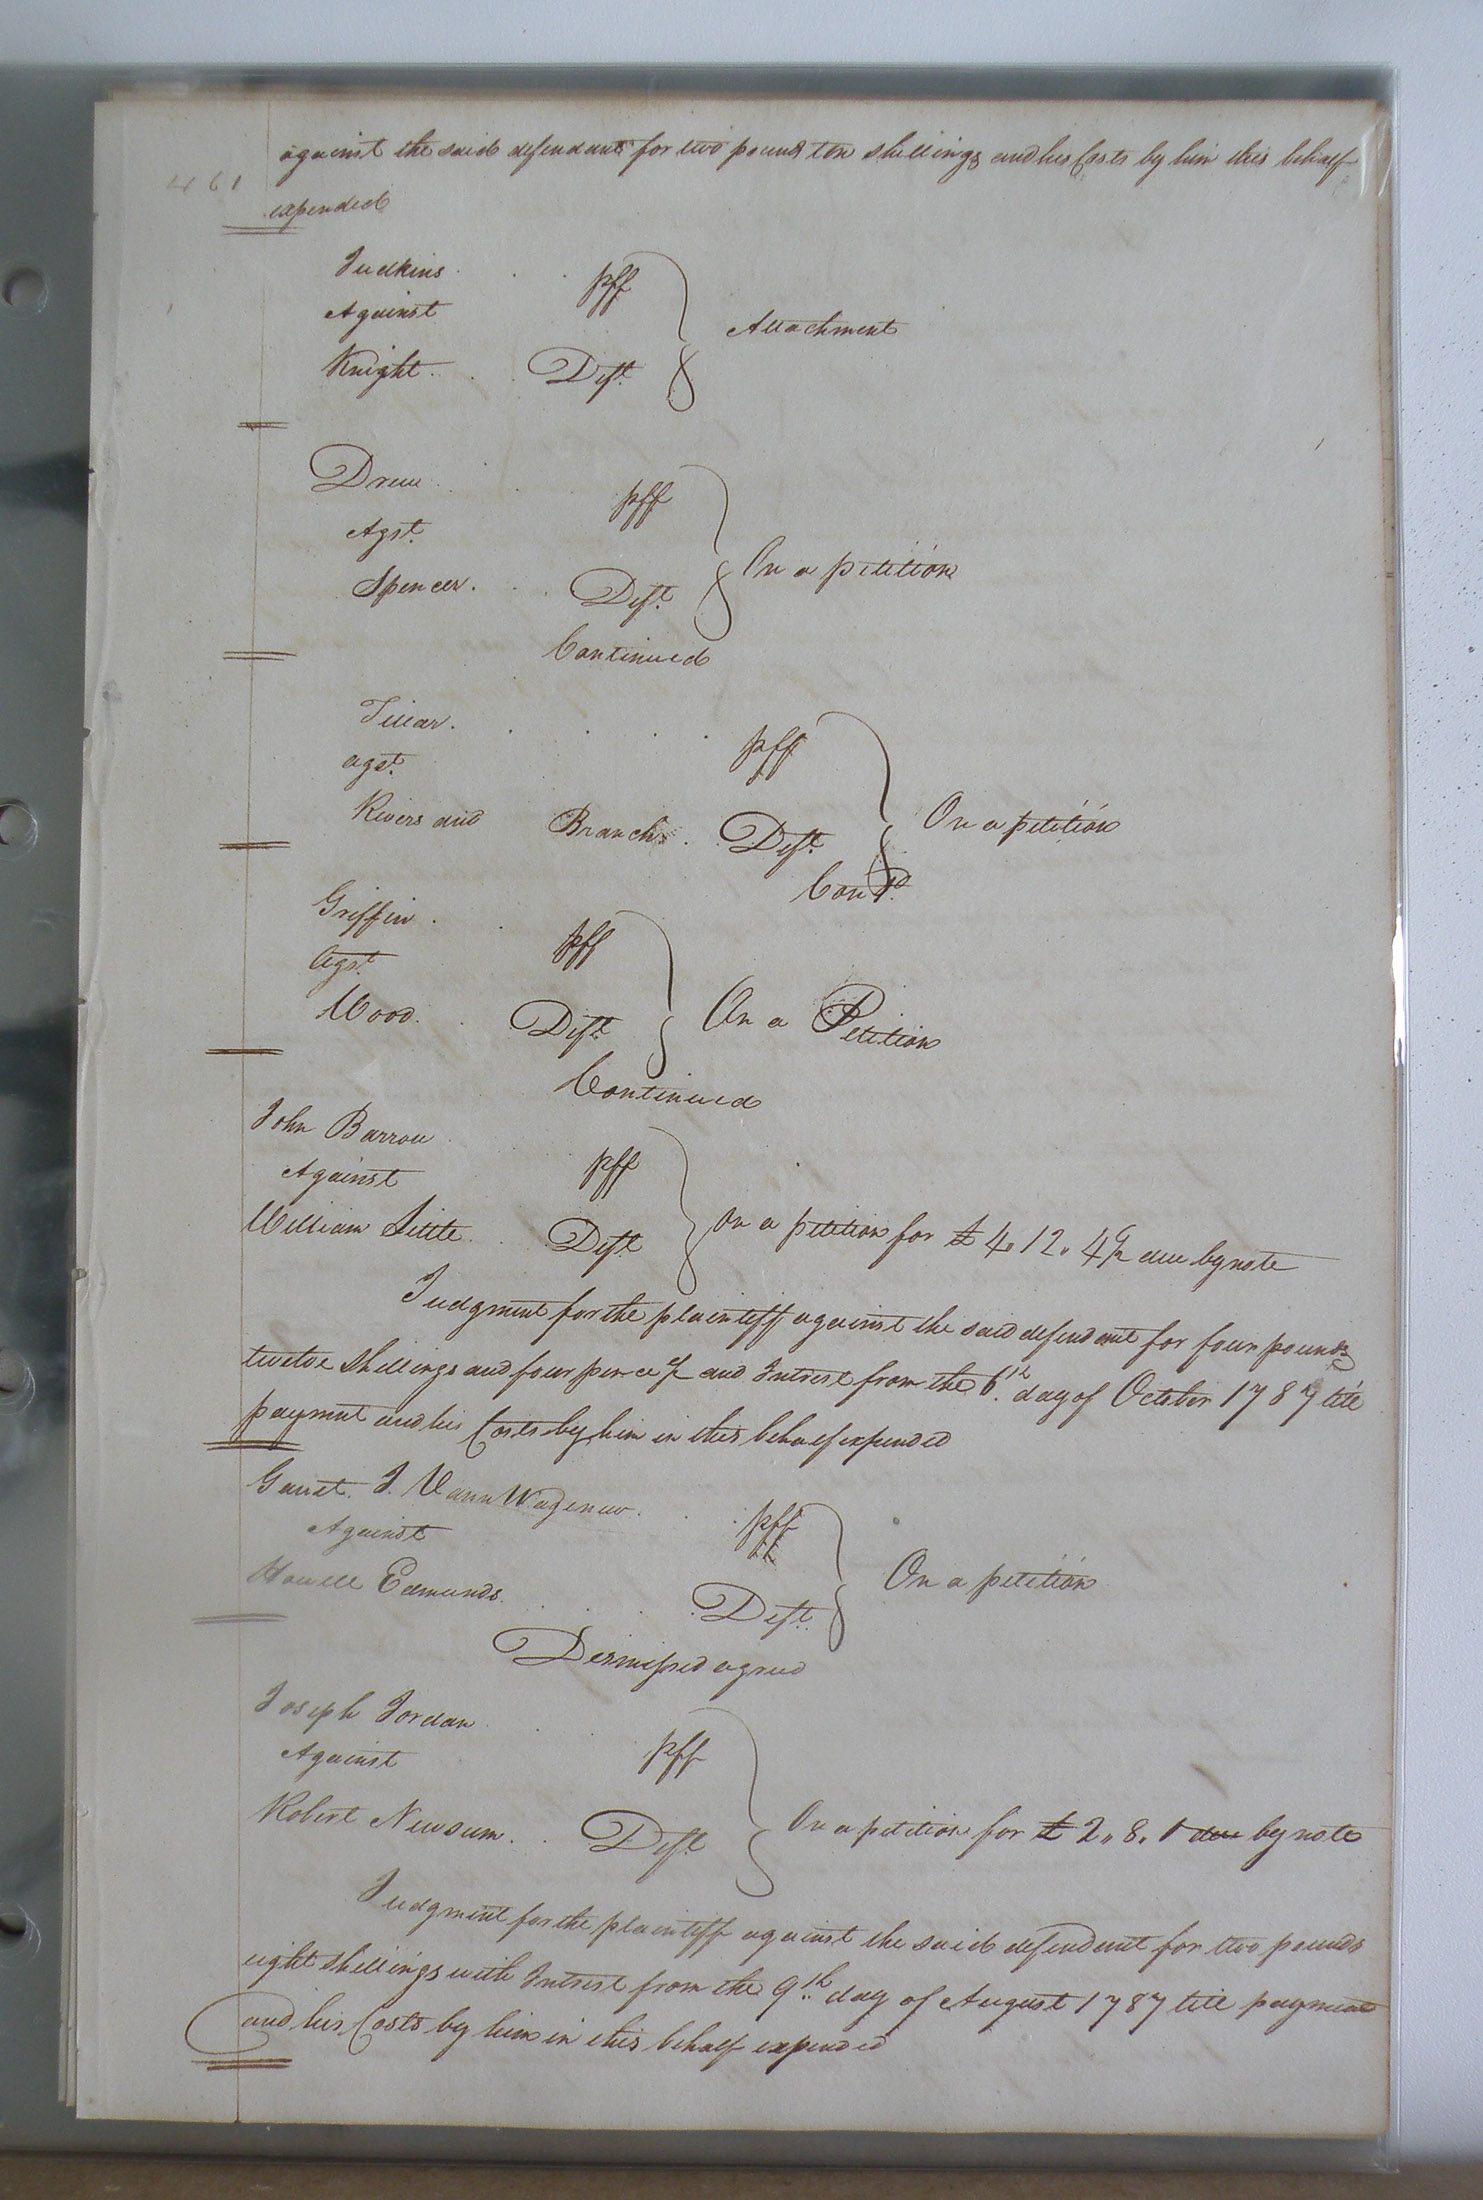 461
against the said defendant for two pound ten shillings and his Costs by him this behalf
expended
Judkins . . . pff
Against
Attachment
Knight . . . Deft.
Drew . . pff
Agst.
On a petition
Spencer . . . Deft.
Continued
Tillar . . . . . pff
agst.
Rivers and Branch . . Deft.
On a petition
Contd.
Griffin . . pff
Agst.
Wood . . Deft.
On a Petition
Continued
John Barrow . . pff
Against
William Little . . Deft
On a petition for £ 4. 12. 4½ due by note
Judgment for the plaintiff against the said defendant for four pounds
twelve Shillings and four pence ½ and Intrest from the 6th. day of October 1787 till
payment and his Costs by him in this behalf expended
Garret. J. Vann Wagenew . . . pff
Against
On a petition
Howell Edmunds . . . . Deft.
Dismissed agreed
Joseph Jordan . . pff
Against
Robert Newsum . . Deft
On a petition for £ 2. 8. 1 due by note
Judgment for the plaintiff against the said defendant for two pounds
eight Shillings with Intrest from the 9th. day of August 1787 till payment
and his Costs by him in this behalf expended